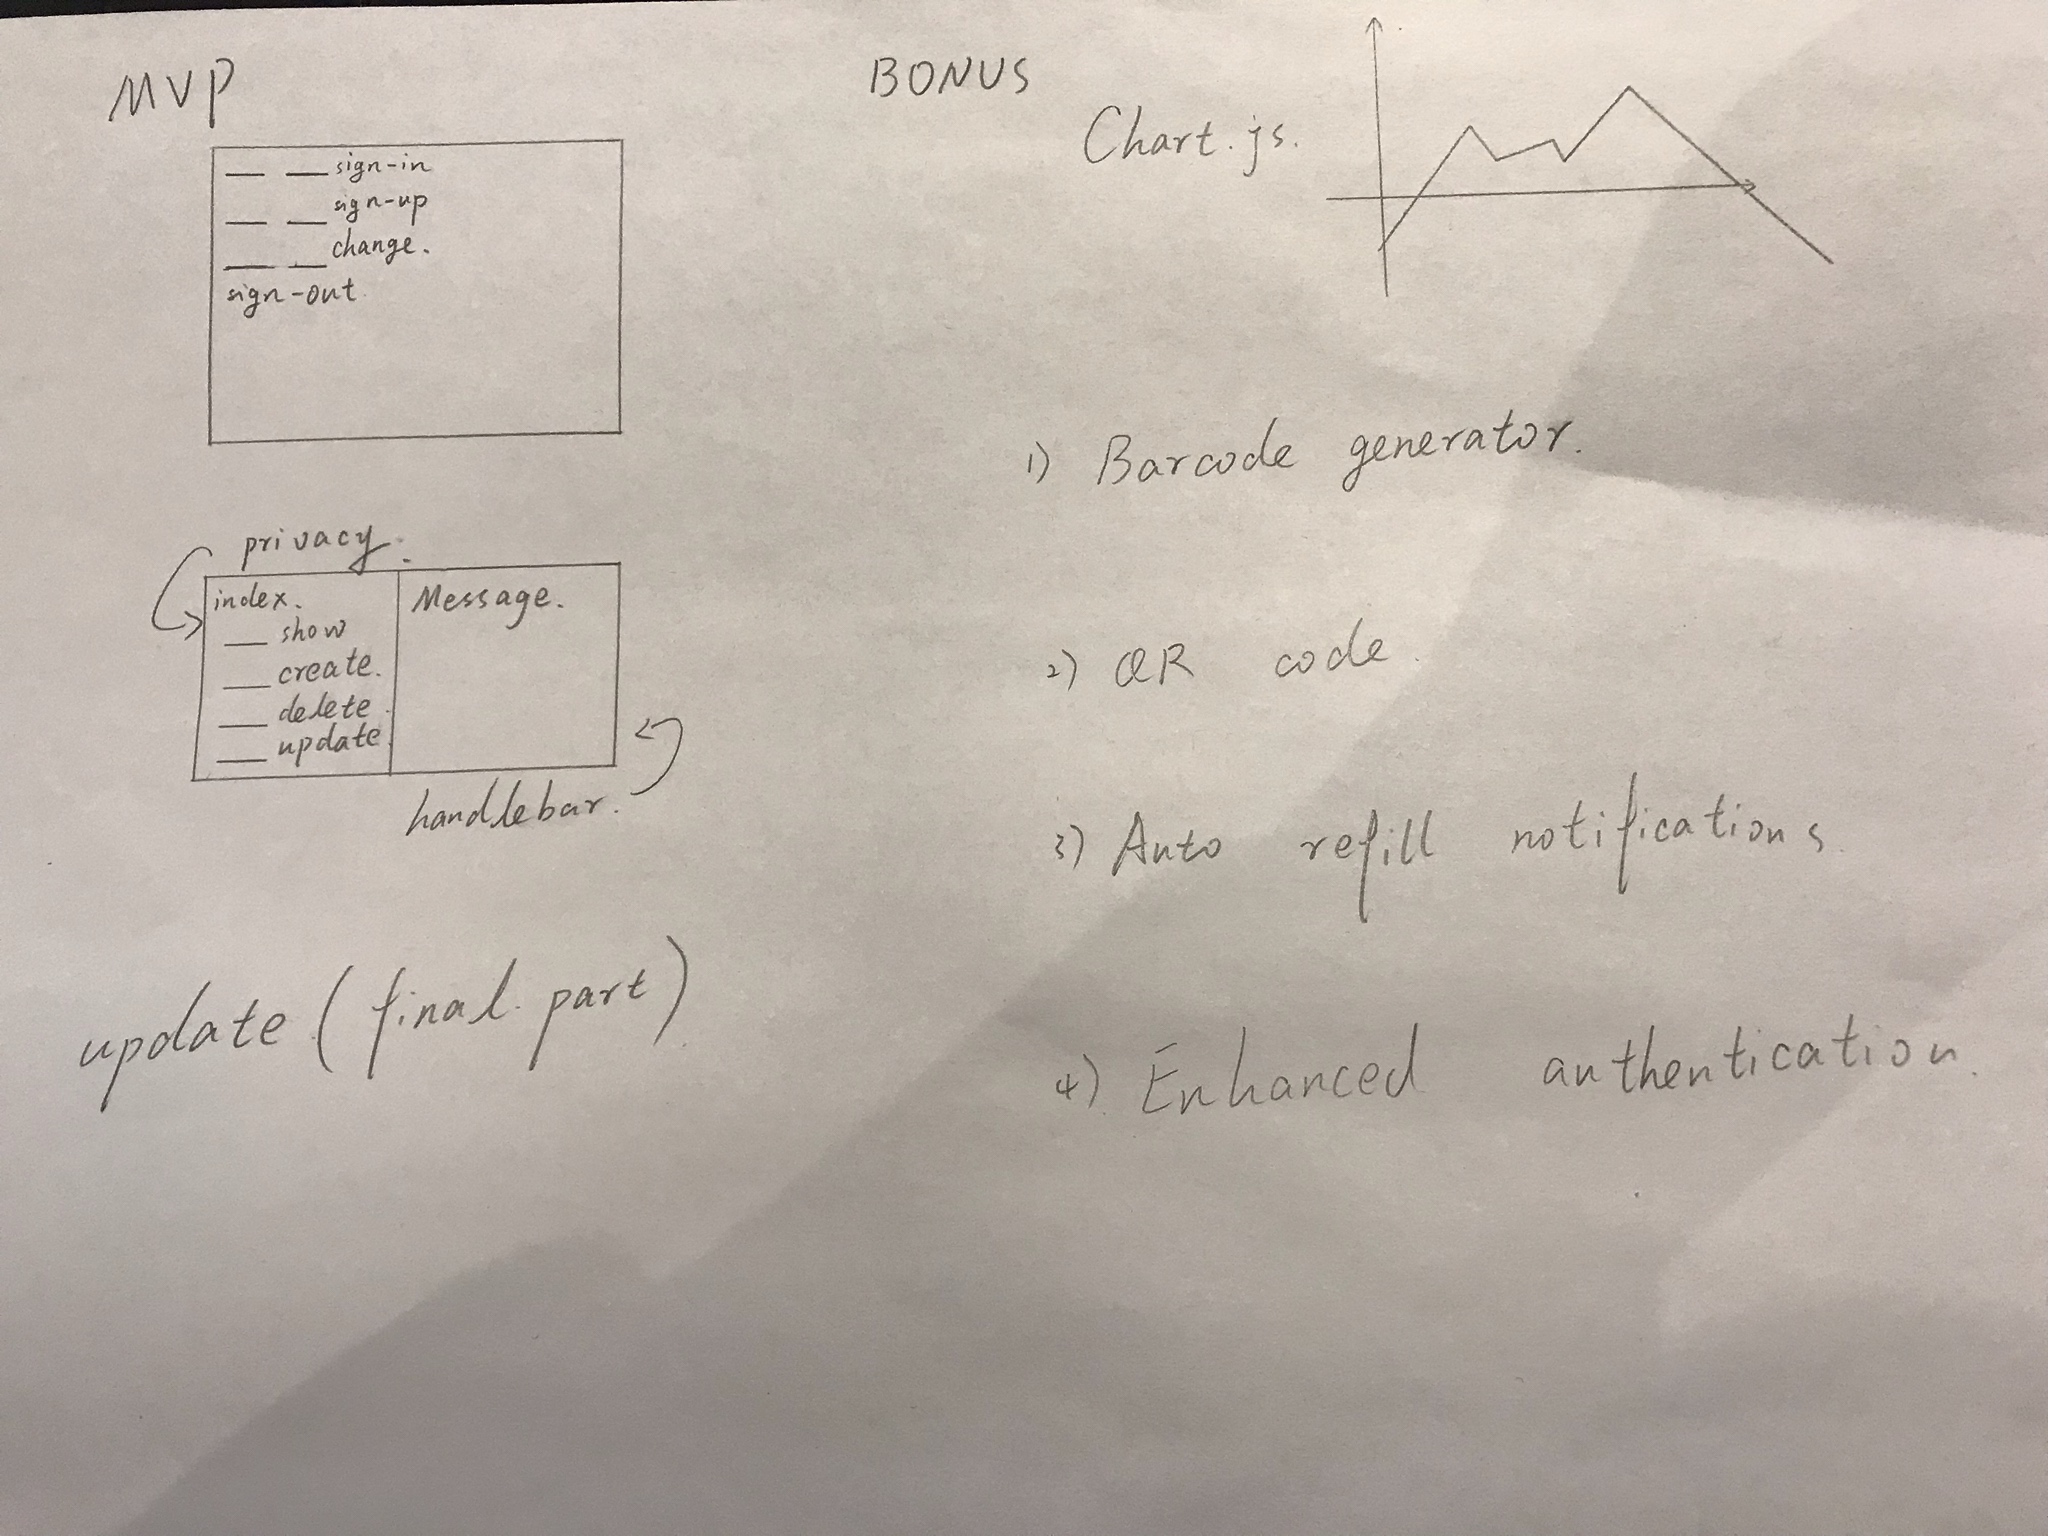 MVP
sign-in
sign-up
change.
sign-out.
privacy.
index.
show
create.
delete
update
Message.
handlebar.
update (final part)
BONUS
Chart.js.
1) Barcode generator.
2) QR code.
3) Auto refill notifications.
4) Enhanced authentication.